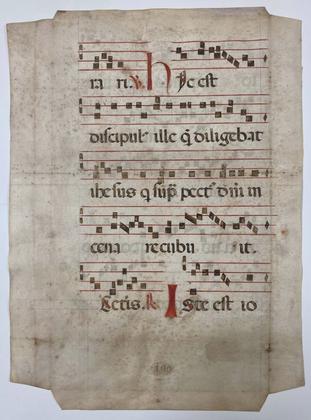 ra ri. V. Hic est
discipul' ille q̄ diligebat
ihesus q sup̄ pect' dn̄i in
cena recubu it.
Letis. R. Iste est io